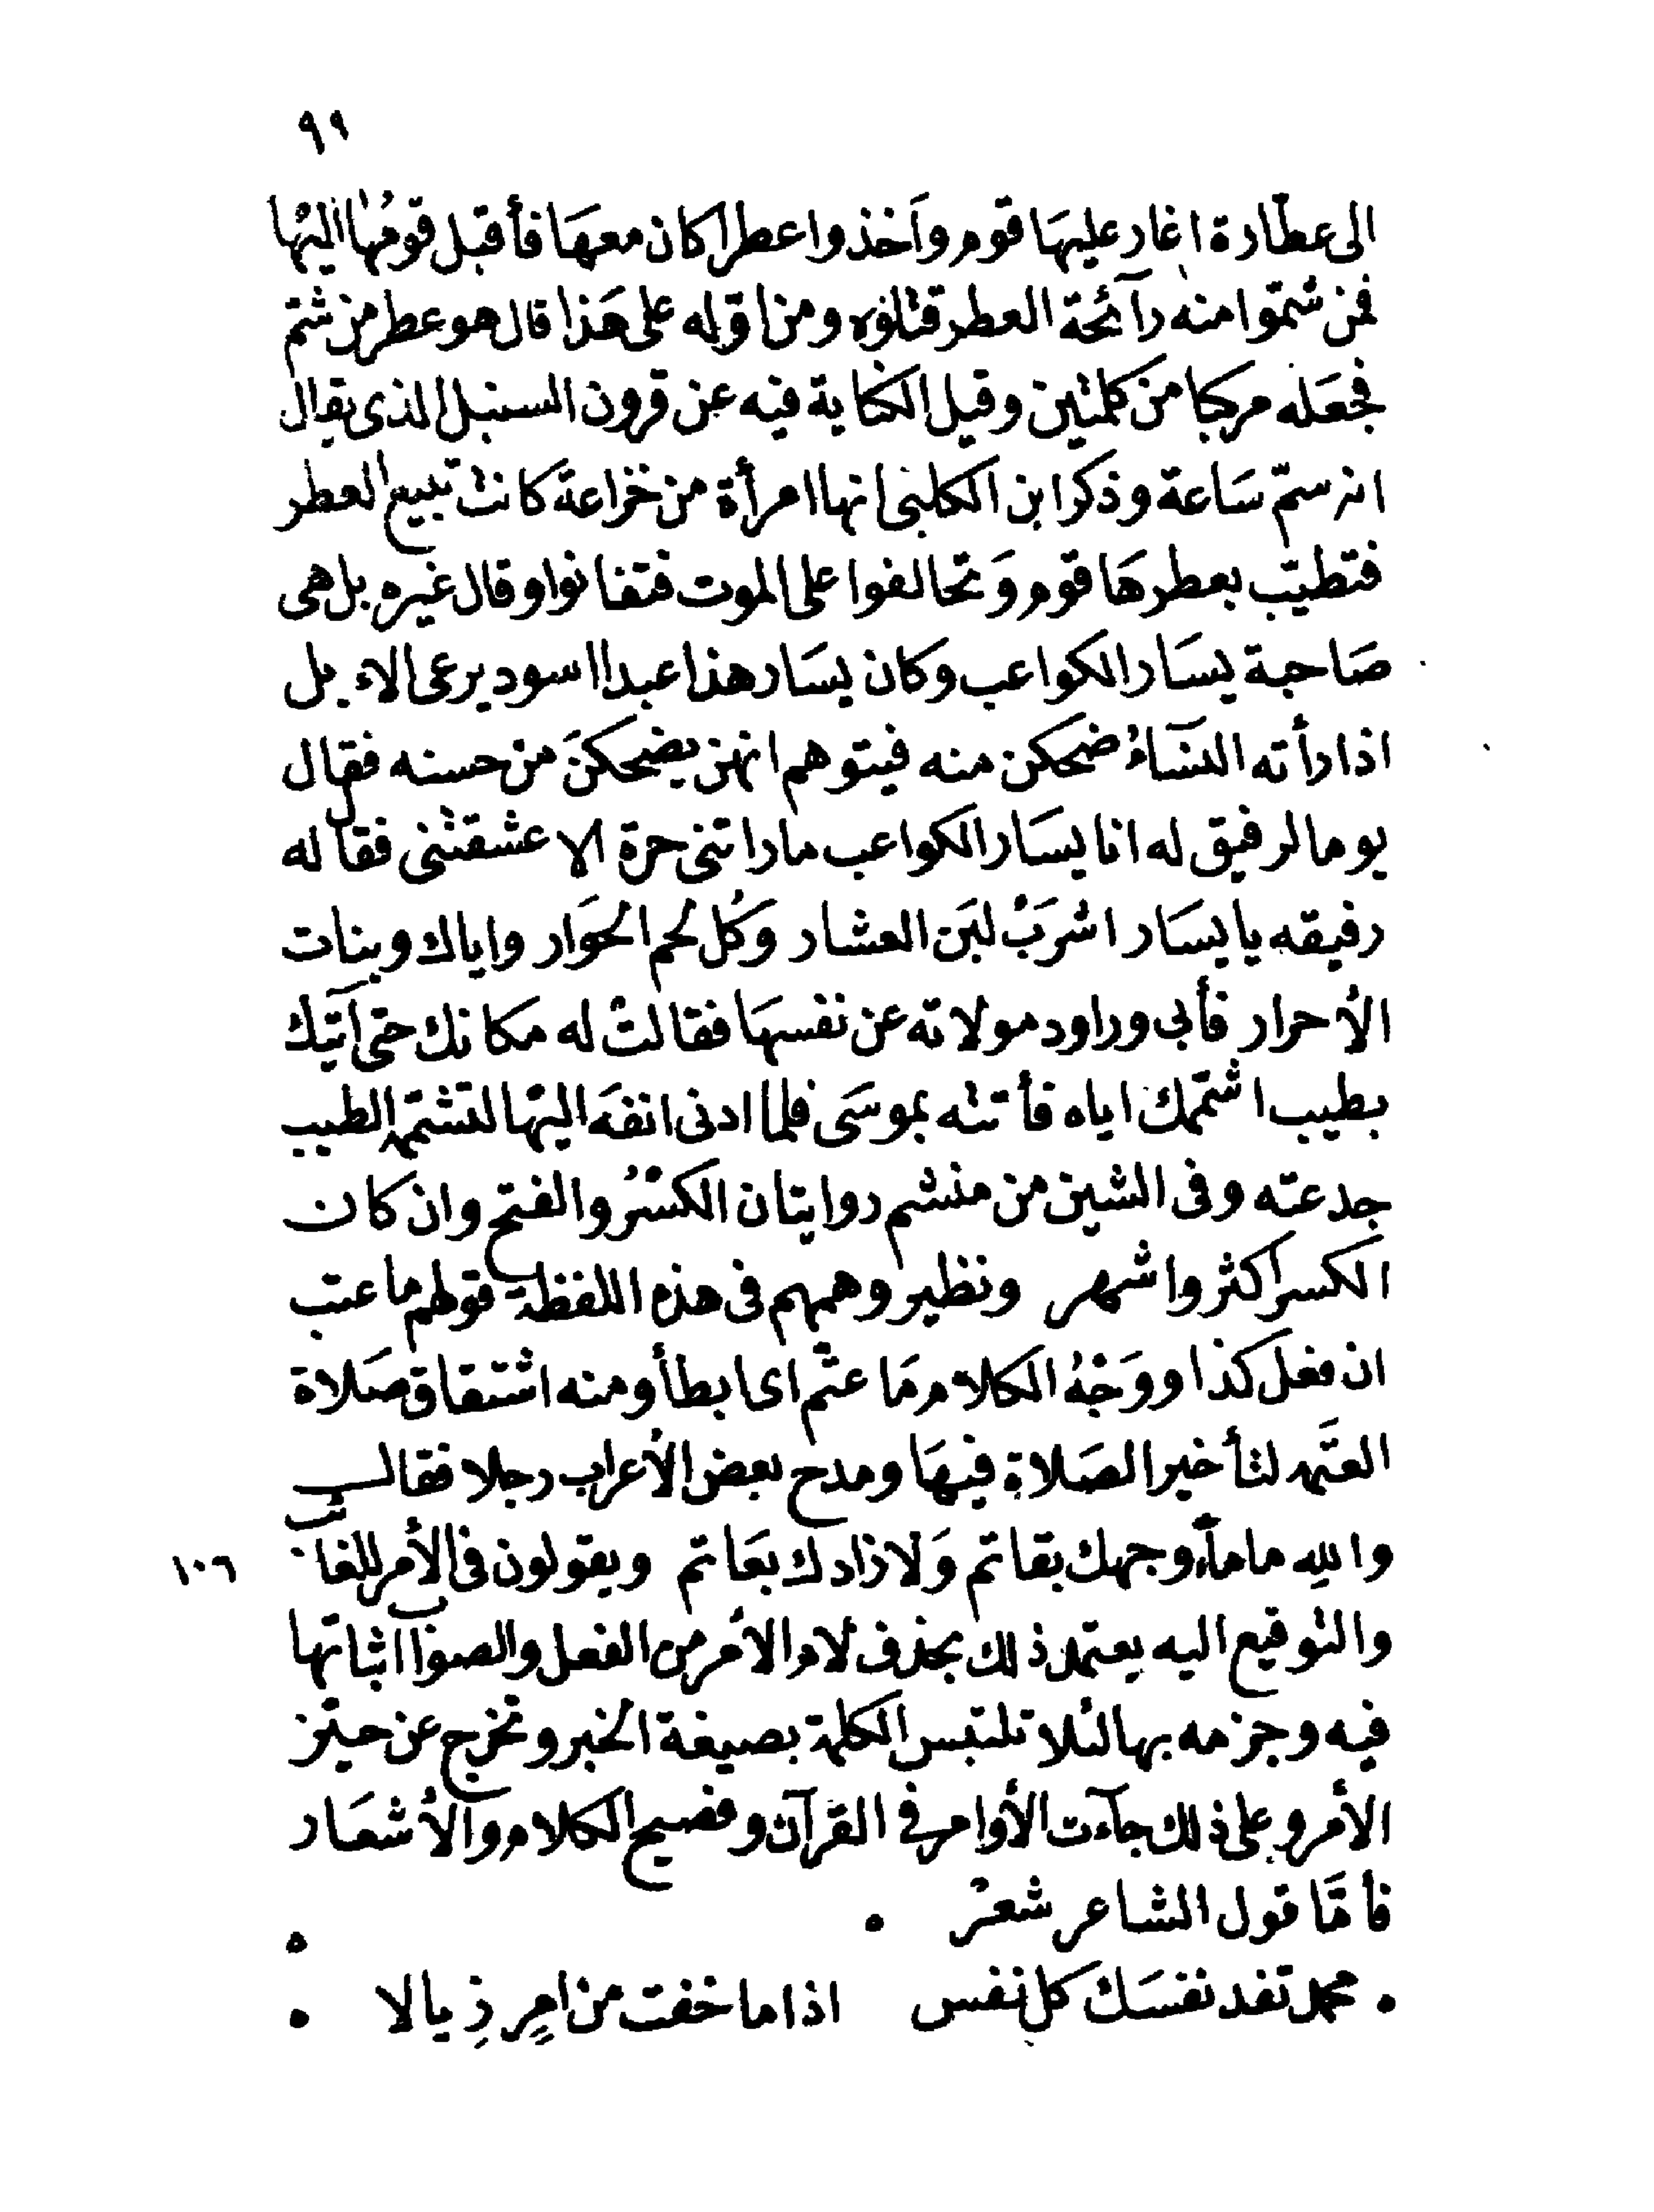 ٩٩
الى عطّارة اغار عليهَا قوم وآخذوا عطرا كان معهَا فأقبل قومُهَا اليْهَا
فمن شمّوا منه رآئحة العطر قتلوه ومن اوّله على هَذا قال هو عطر من شمّ
فجعَله مركبا من كلمتين وقيل الكناية فيه عن قرون السنبل الذى يقال
انه سمّ سَاعة وذكر ابن الكلبى انها امرأة من خزاعة كانت تبيع العطر
فتطيّب بعطرهَا قوم وَتحالفوا على الموت فتفانوا وقال غيره بل هى
صَاحبة يسَار الكواعب وكان يسَار هذا عبدا اسود يرعى الاء بل
اذا رأته النسَآءُ ضحكن منه فيتوهم انهن يضحكنَ من حسنه فقال
يوما لرفيق له انا يسَار الكواعب ما راتنى حرة الا عشقتنى فقال له
رفيقه يا يسَار اشرَبْ لبَن العشار وَكُل لحم الحُوَار واياك وبنات
الأحرار فأبى وراود مولاته عن نفسهَا فقالتْ له مكانك حتى آتيك
بطيب اشمّك اياه فأتته بموسَى فلما ادنى انفهَ اليْهَا لتشمّه الطيب
جدعته وفى الشين من منشم روايتان الكسْرُ والفتح وان كان
الكسر اكثر واشهر ونظير وهمهم فى هذه اللفظة قولهم ما عتب
ان فعل كذا ووَجْهُ الكلام مَا عتّم اى ابطأ ومنه اشتقاق صَلاة
العتَمه لتأخير الصَلاة فيهَا ومدح بعض الأعراب رجلا فقال
والله ما مآء وجهك بقاتم وَلا زادك بعَاتم ويقولون فى الأمر للغائب ١٠٦
والتوقيع اليه يعتمد ذلك بحذف لام الأمر من الفعل والصواب اثباتها
فيه وجزمه بها لئلا تلتبس الكلمة بصيغة الخبر وتخرج عن حيّز
الأمر وعلى ذلك جآءت الأوامر فى القرآن وفصيح الكلام والأشعَار
فأمَّا قول الشاعر شعرْ
محمد تفد نفسَك كل نفس اذا ما خفت من امرٍ زِيالا